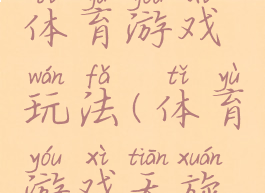 体育游戏
wán fǎ tǐ yù
玩法(体育
yóu xì tiān xuán
游戏天旋